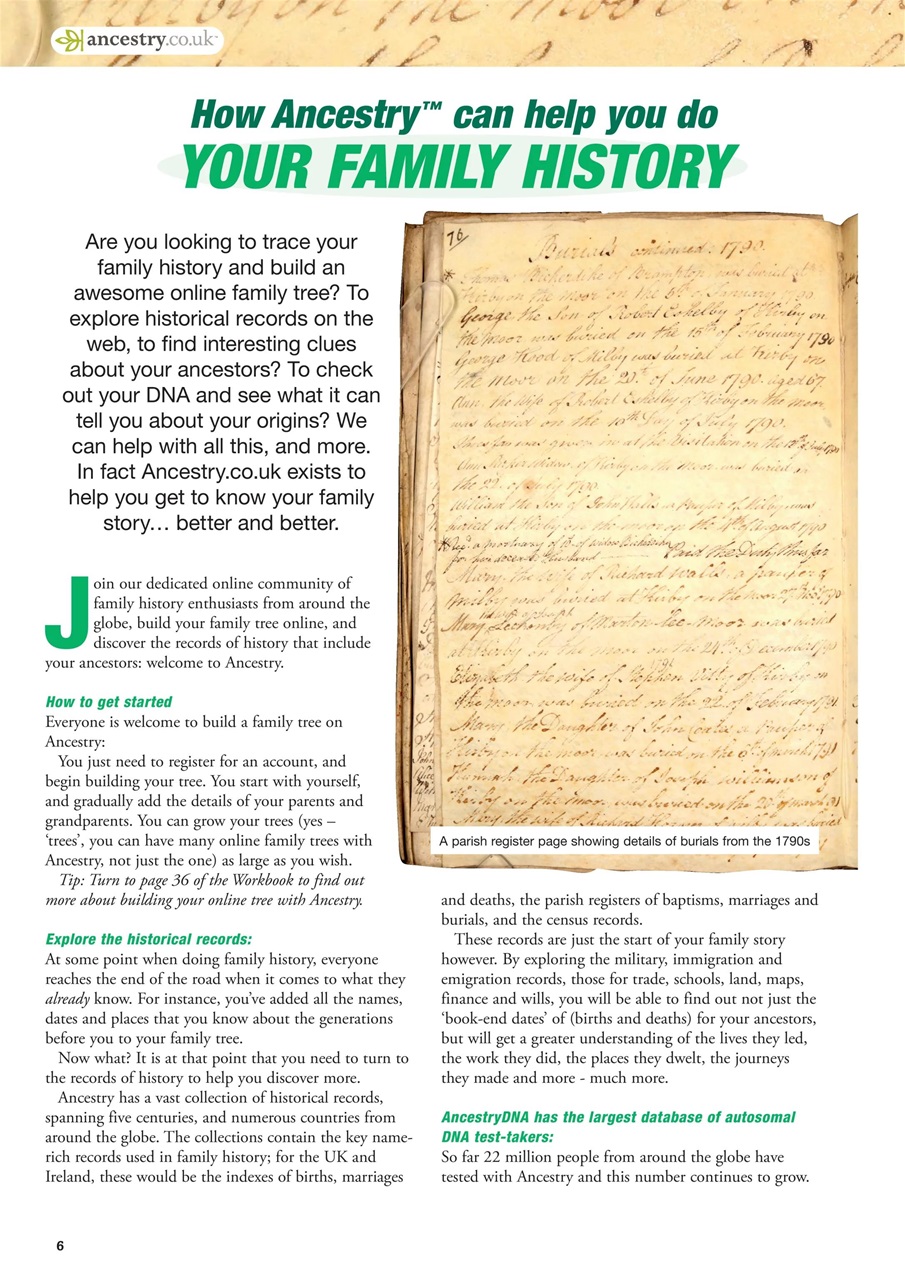 ancestry.co.uk™
How Ancestry™ can help you do
YOUR FAMILY HISTORY
Are you looking to trace your
family history and build an
awesome online family tree? To
explore historical records on the
web, to find interesting clues
about your ancestors? To check
out your DNA and see what it can
tell you about your origins? We
can help with all this, and more.
In fact Ancestry.co.uk exists to
help you get to know your family
story… better and better.
Join our dedicated online community of
family history enthusiasts from around the
globe, build your family tree online, and
discover the records of history that include
your ancestors: welcome to Ancestry.
How to get started
Everyone is welcome to build a family tree on
Ancestry:
You just need to register for an account, and
begin building your tree. You start with yourself,
and gradually add the details of your parents and
grandparents. You can grow your trees (yes –
‘trees’, you can have many online family trees with
Ancestry, not just the one) as large as you wish.
Tip: Turn to page 36 of the Workbook to find out
more about building your online tree with Ancestry.
Explore the historical records:
At some point when doing family history, everyone
reaches the end of the road when it comes to what they
already know. For instance, you’ve added all the names,
dates and places that you know about the generations
before you to your family tree.
Now what? It is at that point that you need to turn to
the records of history to help you discover more.
Ancestry has a vast collection of historical records,
spanning five centuries, and numerous countries from
around the globe. The collections contain the key name-
rich records used in family history; for the UK and
Ireland, these would be the indexes of births, marriages
76
Burials continued: 1790.
of Brampton was buried at
Kirby on the moor on the 6th of January 1790
George the Son of Robert Eshelby of Kirby on
the moor was buried on the 15th of February 1790
George Hood of Milby was buried at Kirby on
the moor on the 29th of June 1790. aged 67.
Ann the Wife of Robert Eshelby of Kirby on the moor
was buried on the 10th Day of July 1790.
was given in at the Visitation on the
Ann of Kirby on the moor was buried on
the 22 of July 1790
William the Son of John Walls a Pauper of Milby was
buried at Kirby on the moor on the of August 1790
Paid the Duty thus far
Mary the Wife of Richard Walls, a pauper of
Milby was buried at Kirby on the moor
Mary of Marton Lee Moor was buried
at Kirby on the moor on the 24th December 1790
1791
Elizabeth the wife of Stephen Willy of Kirby on
the moor was buried on the 22 of February 1791
Mary the Daughter of John Coates a Pauper of
Kirby on the moor was buried on the 6th of March 1791
Hannah the Daughter of Joseph Williamson of
Kirby on the moor was buried on the 20th of March 91
Mary the wife of Richard
A parish register page showing details of burials from the 1790s
and deaths, the parish registers of baptisms, marriages and
burials, and the census records.
These records are just the start of your family story
however. By exploring the military, immigration and
emigration records, those for trade, schools, land, maps,
finance and wills, you will be able to find out not just the
‘book-end dates’ of (births and deaths) for your ancestors,
but will get a greater understanding of the lives they led,
the work they did, the places they dwelt, the journeys
they made and more - much more.
AncestryDNA has the largest database of autosomal
DNA test-takers:
So far 22 million people from around the globe have
tested with Ancestry and this number continues to grow.
6